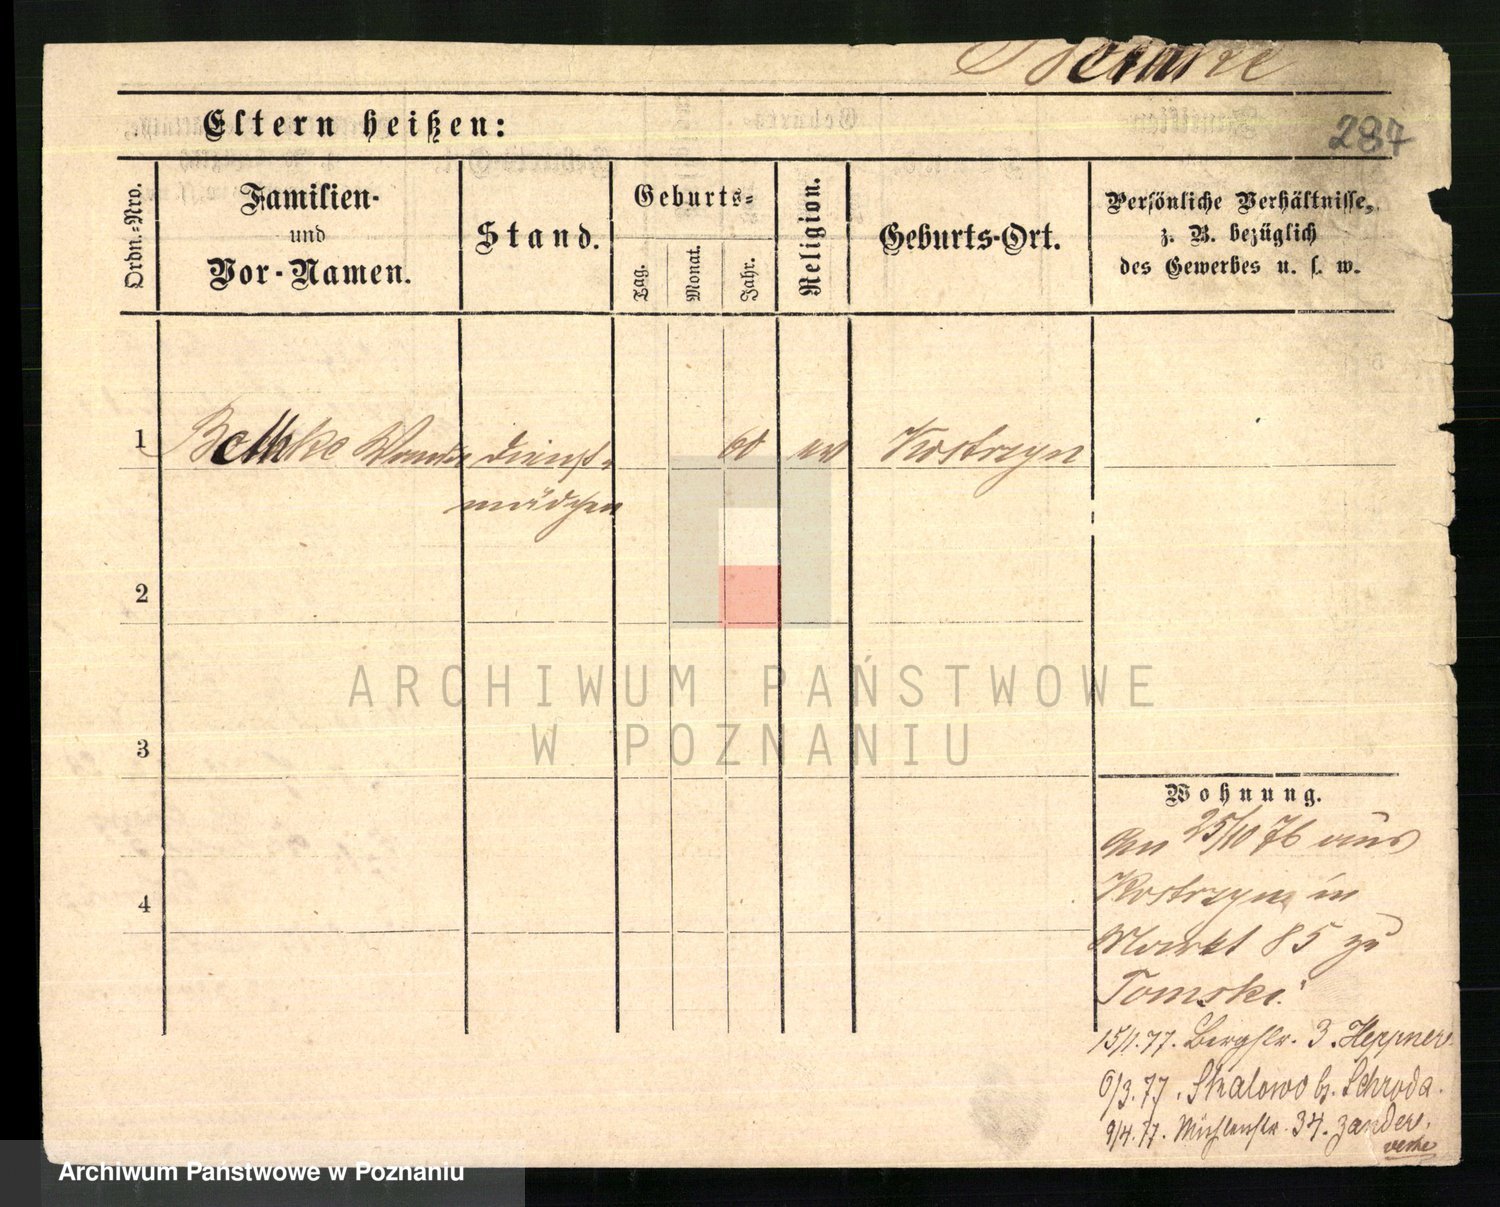 Bethke
287
Eltern heißen:
Ordn.-Nro.
Familien-
und
Vor-Namen.
Stand.
Geburts-
Tag.
Monat.
Jahr.
Religion.
Geburts-Ort.
Persönliche Verhältnisse,
z. B. bezüglich
des Gewerbes u. s. w.
1 Bethke Wanda Dienst- 60 ev Kostrzyn
mädchen
2
3
4
ARCHIWUM PAŃSTWOWE
W POZNANIU
Wohnung.
25/10 76 aus
Kostrzyn in
Markt 85 zu
Tomski.
15/1.77. Bergstr. 3. Heppner
6/3.77. b. Schroda.
9/4.77. Mühlenstr. 34. Zander.
verte
Archiwum Panstwowe w Poznaniu